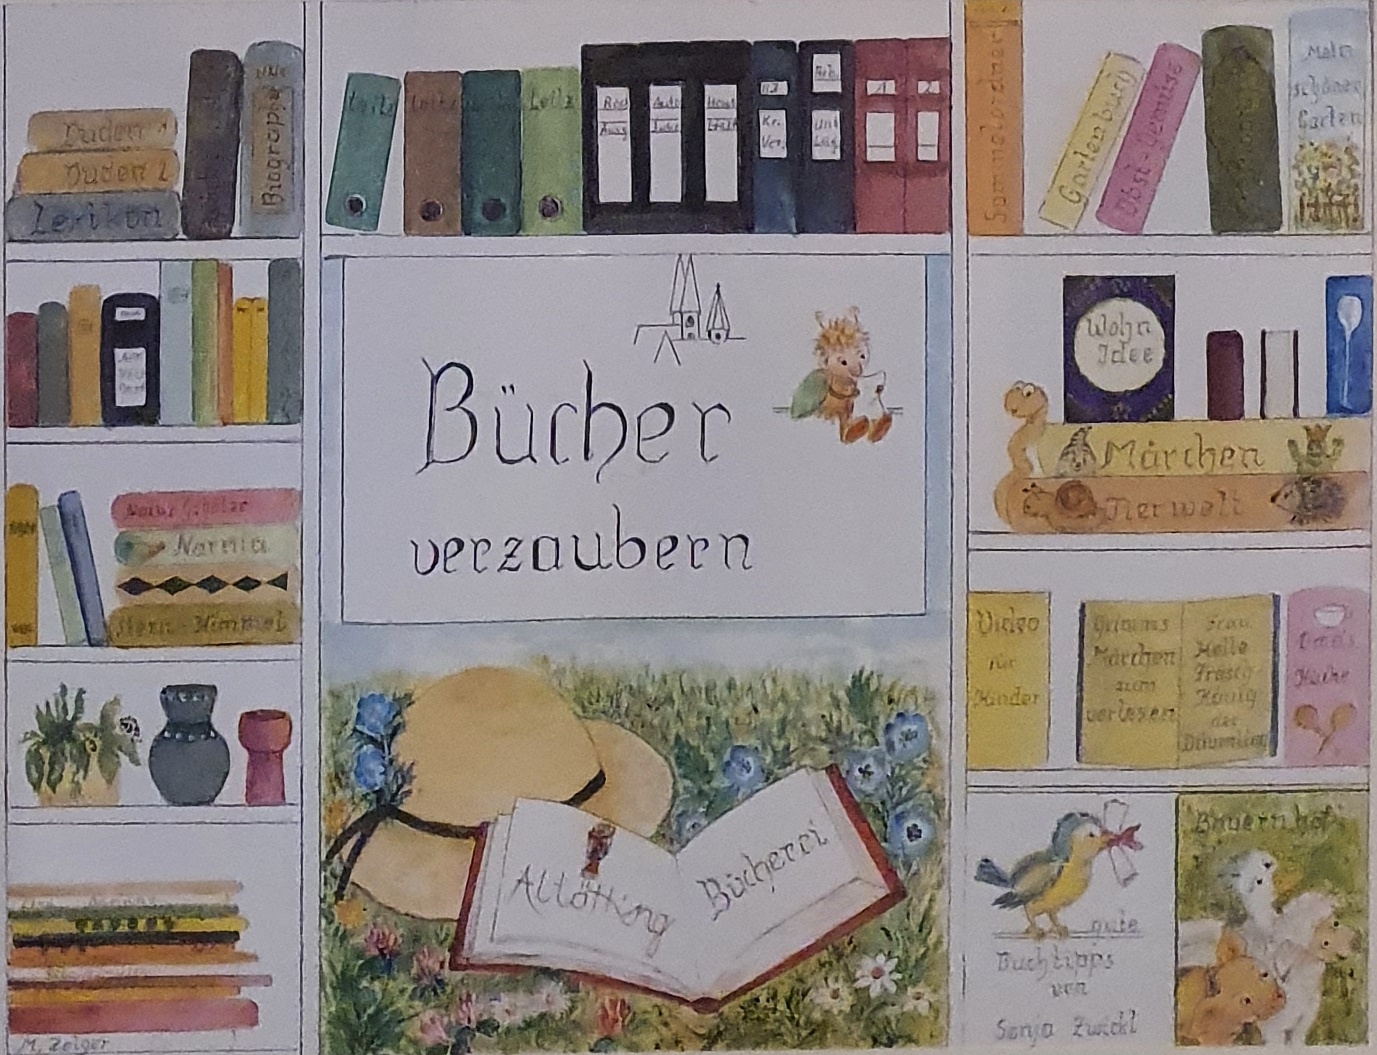 Duden 1
Duden 2
Lexikon
Biographie
Leitz
Leitz
Leitz
1
2
Sammelordner
Gartenbuch
Obst-Gemüse
Mein
schöner
Garten
Bücher
verzaubern
Wohn
Idee
Märchen
Tierwelt
Narnia
Stern-Himmel
Video
für
Kinder
Grimms
Märchen
zum
vorlesen
Frau
Holle
Frosch
König
der
Däumling
Oma's
Küche
Altötting
Bücherei
gute
Buchtipps
von
Sonja Zwickl
Bauernhof
M. Zeiger